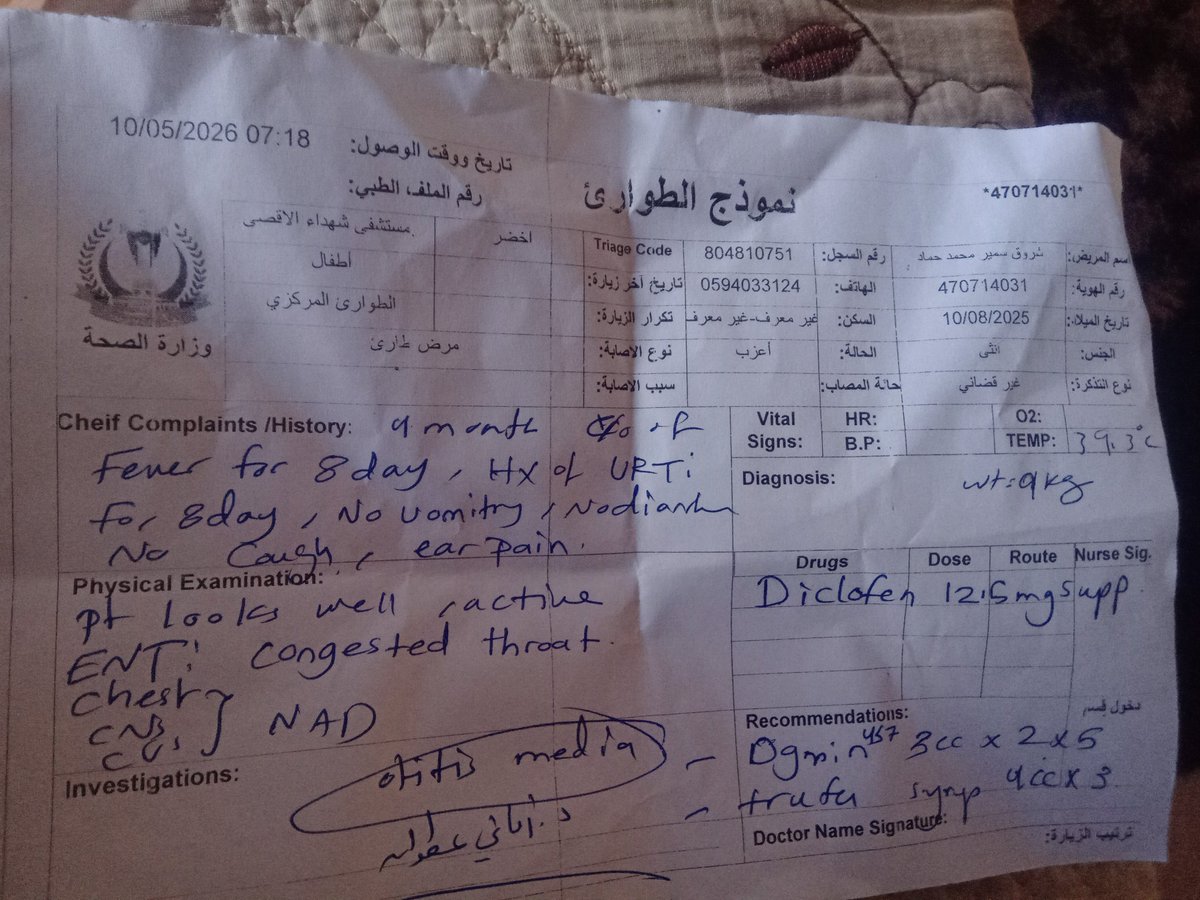 تاريخ ووقت الوصول: 10/05/2026 07:18
رقم الملف الطبي:
نموذج الطوارئ
*470714031*
وزارة الصحة
اسم المريض: شروق سمير محمد حماد رقم السجل: 804810751 Triage Code اخضر مستشفى شهداء الاقصى
رقم الهوية: 470714031 الهاتف: 0594033124 تاريخ آخر زيارة: أطفال
تاريخ الميلاد: 10/08/2025 السكن: غير معرف-غير معرف تكرار الزيارة: الطوارئ المركزي
الجنس: انثى الحالة: أعزب نوع الاصابة: مرض طارئ
نوع التذكرة: غير قضائي حالة المصاب: سبب الاصابة:
Cheif Complaints /History: 9 month c/o of
Fever for 8 day, Hx of URTi
for 8 day, No vomitry, No diarrh
No Cough, ear pain.
Vital Signs: HR: O2:
B.P: TEMP: 39.3°c
Diagnosis: wt: 9 kg
Physical Examination:
pt looks well, active
ENT: congested throat.
Chest
CNS } NAD
CVS
Drugs Dose Route Nurse Sig.
Diclofen 12.5mg supp
دخول قسم
Investigations:
otitis media
د. أماني
Recommendations:
- Ogmin 457 3cc x 2 x 5
- syrup 4cc x 3
Doctor Name Signature:
ترتيب الزيارة: